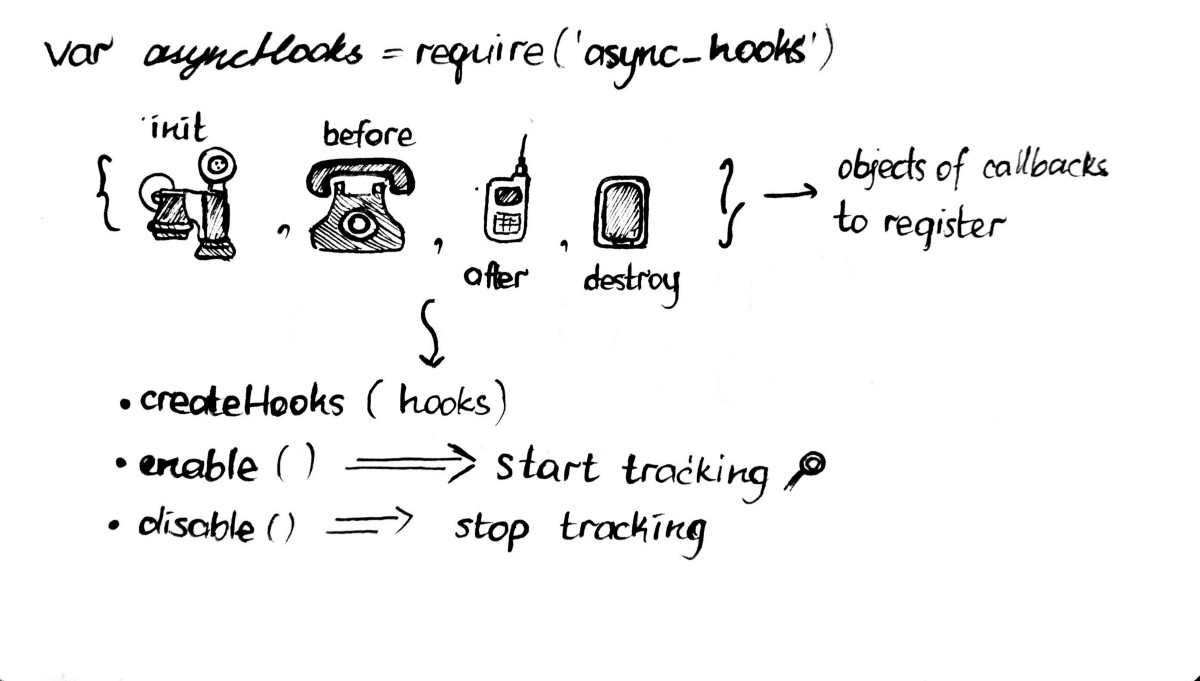 var asyncHooks = require('async_hooks')
init
before
{ , , , } → objects of callbacks
to register
after
destroy
• createHooks ( hooks)
• enable ( ) ⟹ start tracking
• disable ( ) ⟹ stop tracking